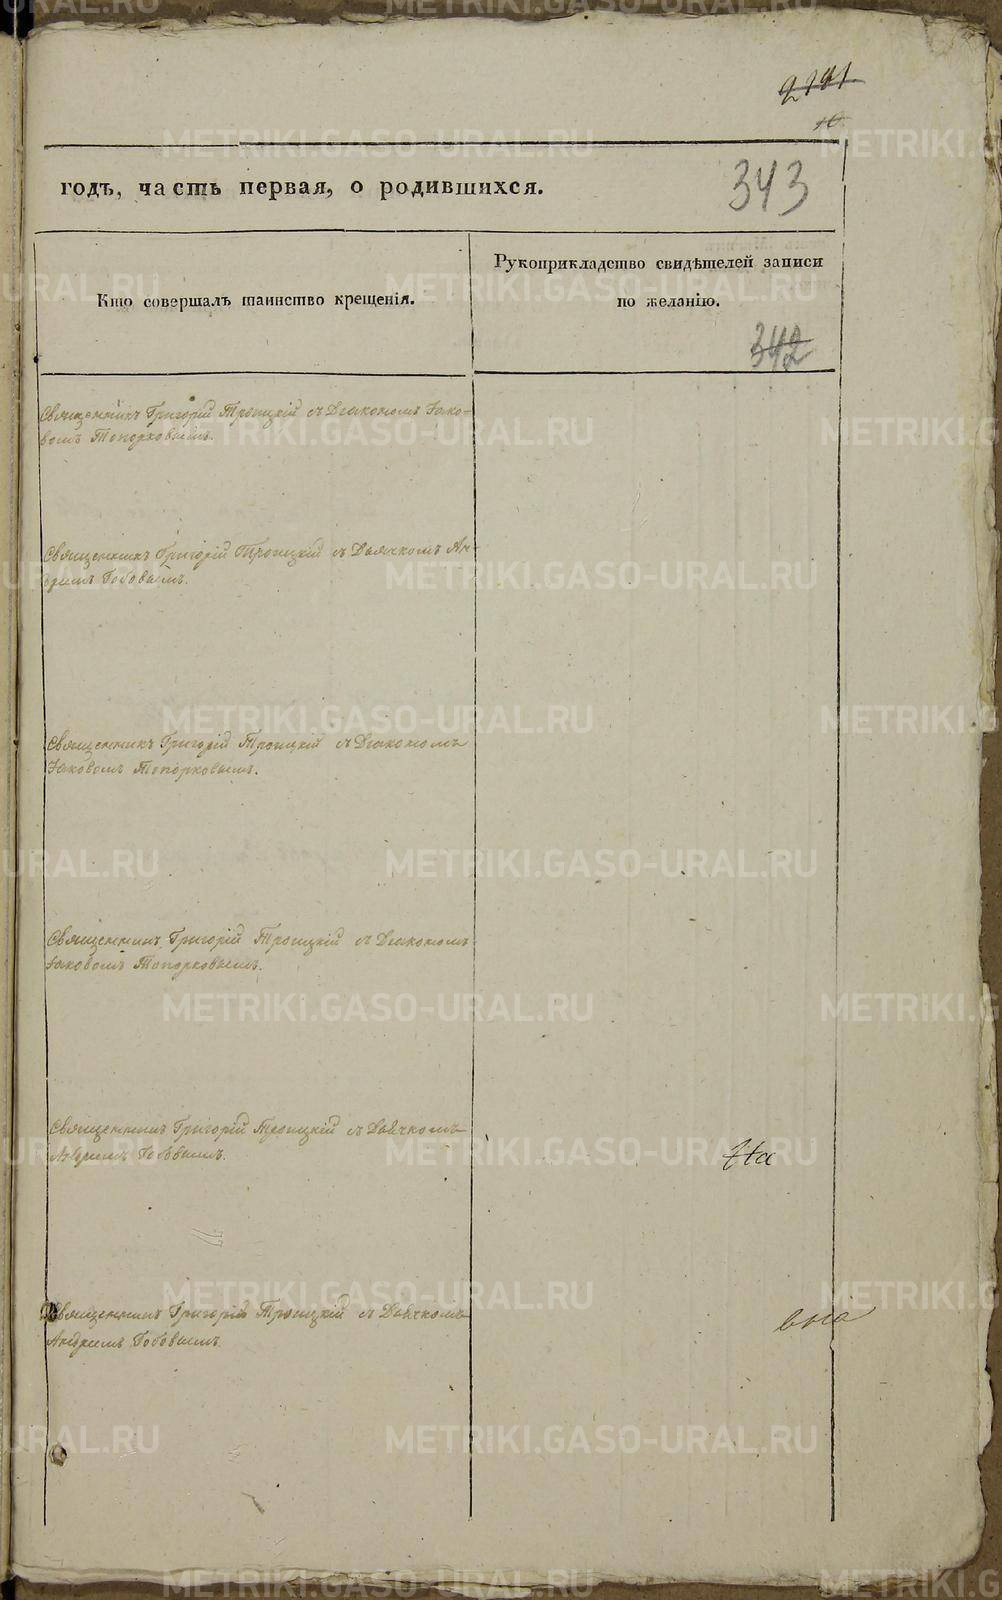 2191
10.
годъ, часть первая, о родившихся.
343
Кто совершалъ таинство крещенія.
Рукоприкладство свидѣтелей записи
по желанію.
342
Священникъ Григорій Троицкій съ Діакономъ Іако-
вомъ Топорковымъ.
Священникъ Григорій Троицкій съ Дьячкомъ Ан-
дреемъ Бобовымъ.
Священникъ Григорій Троицкій съ Діакономъ
Іаковомъ Топорковымъ.
Священникъ Григорій Троицкій съ Діакономъ
Іаковомъ Топорковымъ.
Священникъ Григорій Троицкій съ Дьячкомъ
Андреемъ Бобовымъ.
Священникъ Григорій Троицкій съ Дьячкомъ
Андреемъ Бобовымъ.
METRIKI.GASO-URAL.RU